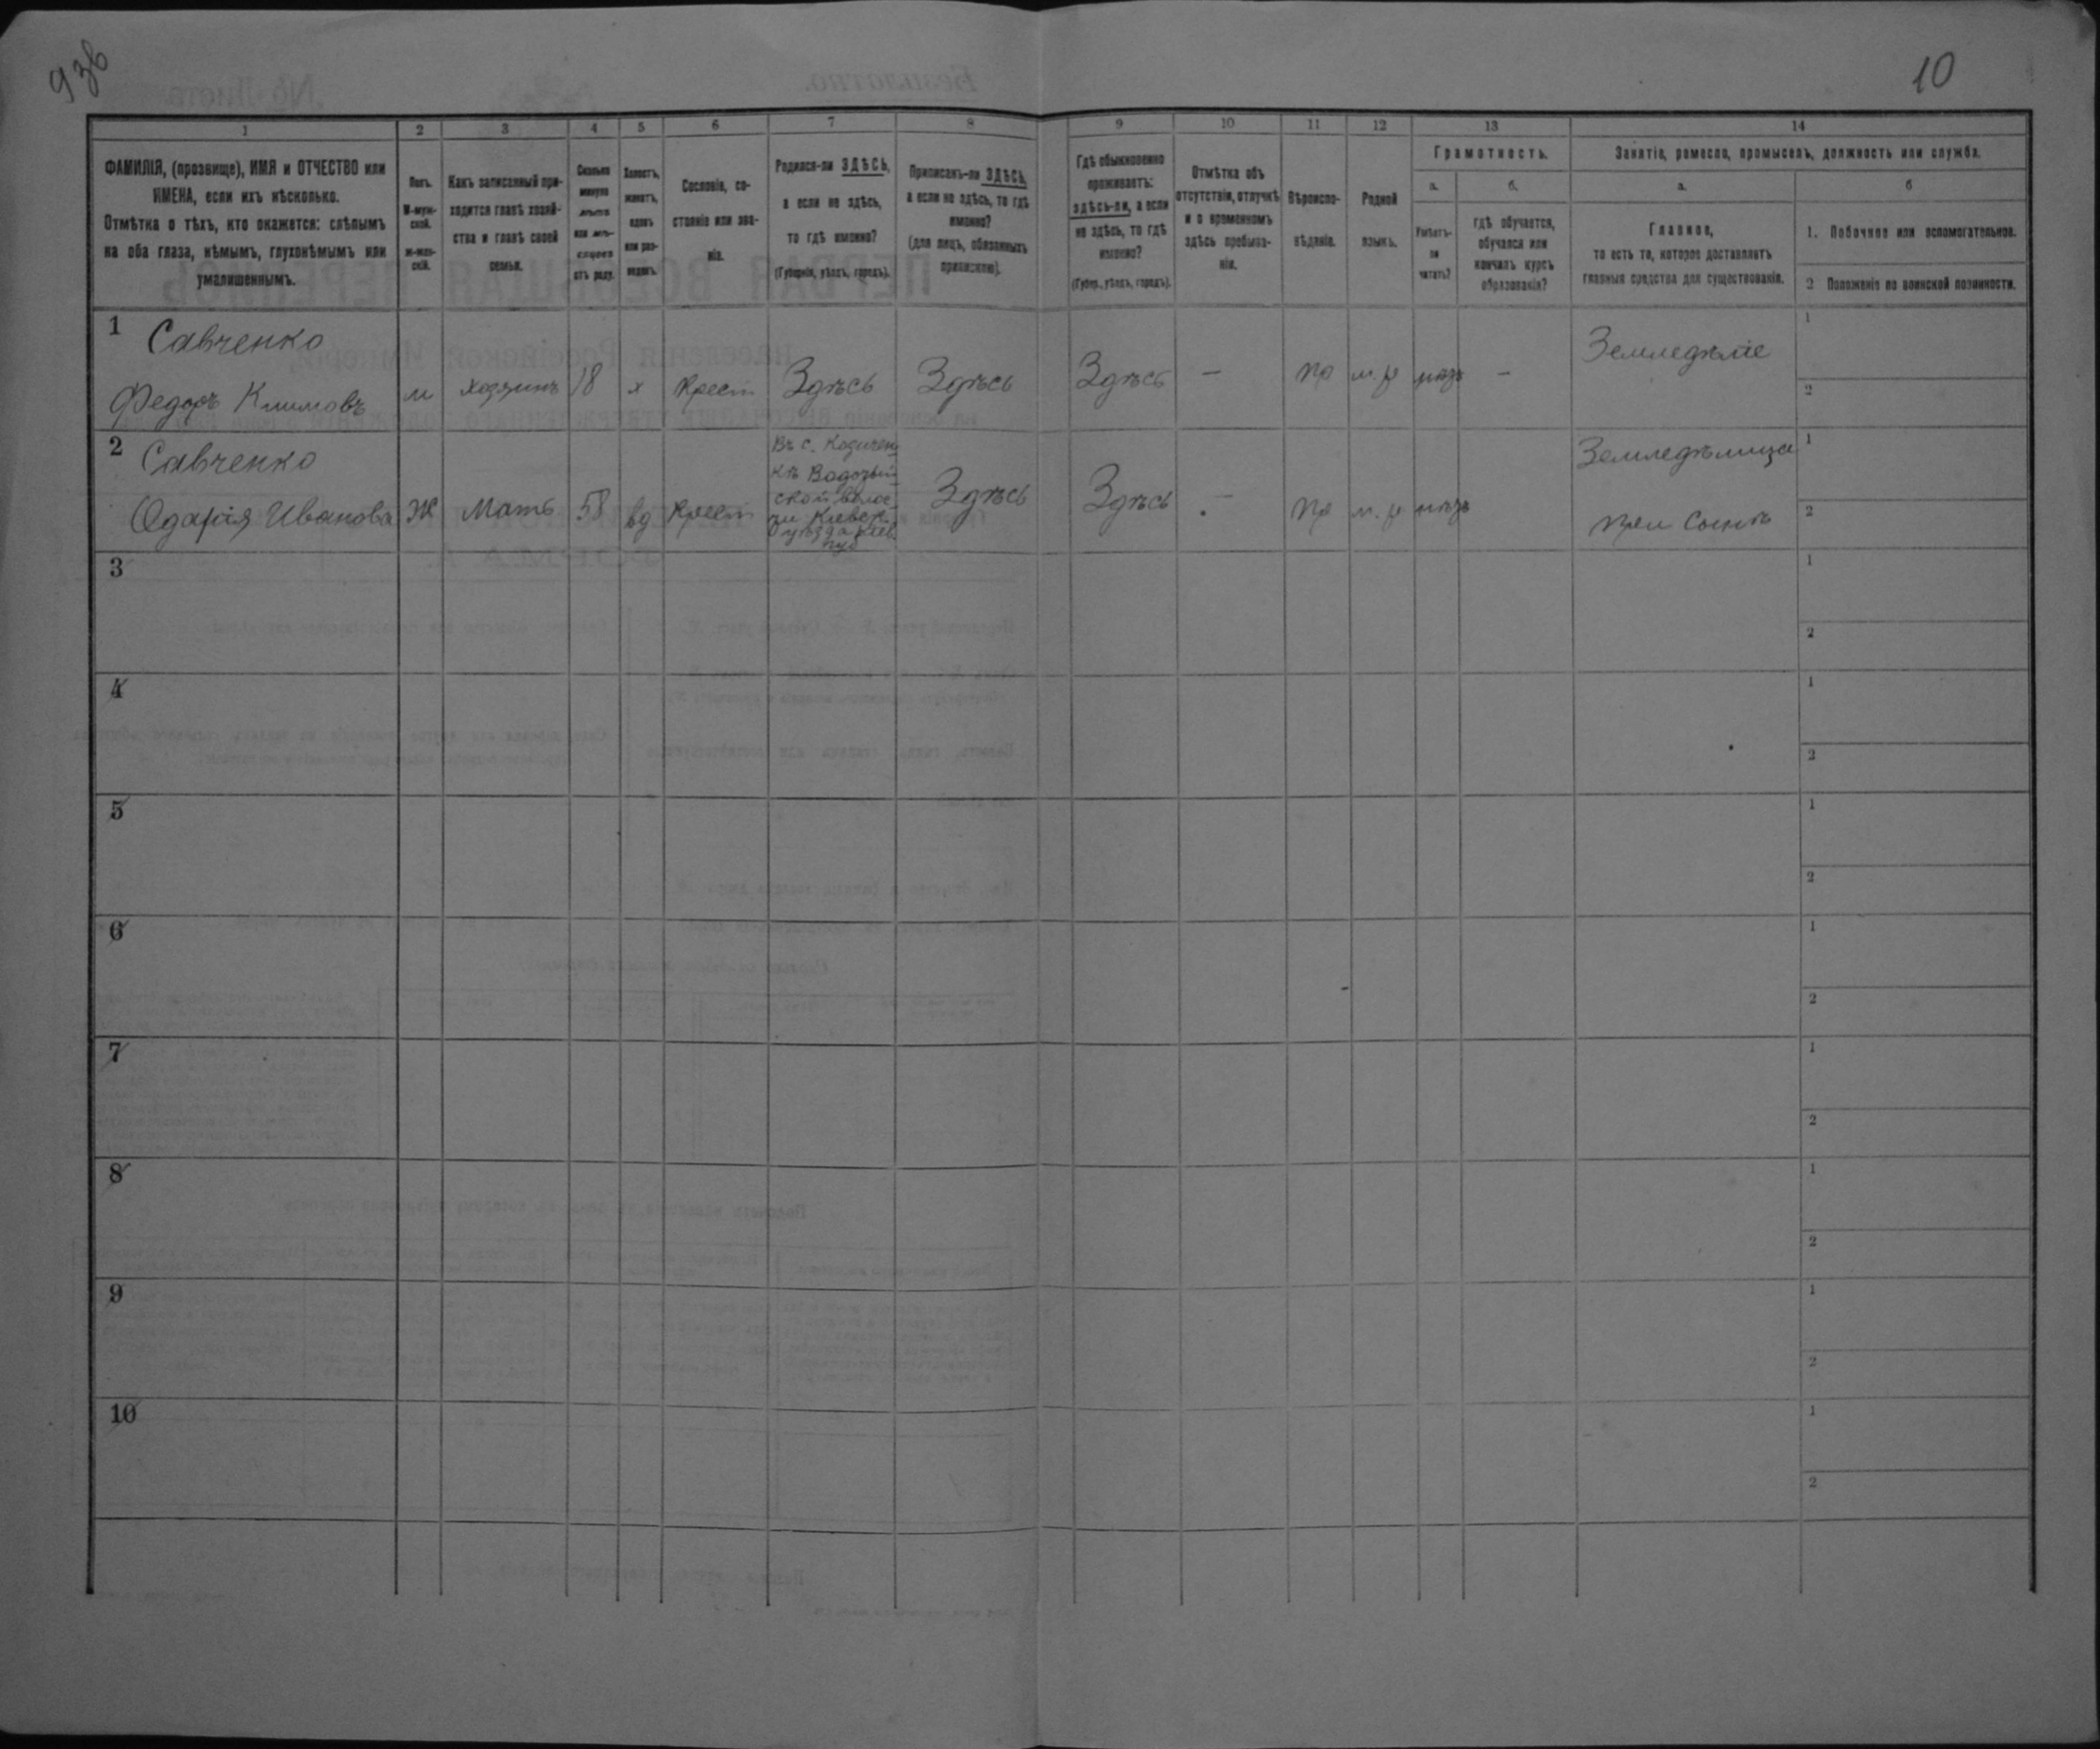 936
10
1 2 3 4 5 6 7 8 9 10 11 12 13 14
ФАМИЛІЯ, (прозвище), ИМЯ и ОТЧЕСТВО или
ИМЕНА, если ихъ нѣсколько.
Отмѣтка о тѣхъ, кто окажется: слѣпымъ
на оба глаза, нѣмымъ, глухонѣмымъ или
умалишеннымъ.
Полъ.
М-муж-
ской.
Ж-жен-
скій.
Какъ записанный при-
ходится главѣ хозяй-
ства и главѣ своей
семьи.
Сколько
минуло
лѣтъ
или мѣ-
сяцевъ
отъ роду.
Холостъ,
женатъ,
вдовъ
или раз-
веденъ.
Сословіе, со-
стояніе или зва-
ніе.
Родился-ли ЗДѢСЬ,
а если не здѣсь,
то гдѣ именно?
(Губернія, уѣздъ, городъ).
Приписанъ-ли ЗДѢСЬ,
а если не здѣсь, то гдѣ
именно?
(для лицъ, обязанныхъ
припискою).
Гдѣ обыкновенно
проживаетъ:
здѣсь-ли, а если
не здѣсь, то гдѣ
именно?
(Губер., уѣздъ, городъ).
Отмѣтка объ
отсутствіи, отлучкѣ
и о временномъ
здѣсь пребыва-
ніи.
Вѣроиспо-
вѣданіе.
Родной
языкъ.
Грамотность.
а.
Умѣетъ-
ли
читать?
б.
гдѣ обучается,
обучался или
кончилъ курсъ
образованія?
Занятіе, ремесло, промыселъ, должность или служба.
а.
Главное,
то есть то, которое доставляетъ
главныя средства для существованія.
б
1. Побочное или вспомогательное.
2 Положеніе по воинской повинности.
1 Савченко
Федоръ Климовъ м хозяинъ 18 х Крест Здѣсь Здѣсь Здѣсь — пр м. р — Земледѣліе
1
2
2 Савченко
Одарія Иванова Ж Мать 58 вд Крест
Въ с.
ской волос
ти Киевск.
уѣзда Киев.
губ
Здѣсь Здѣсь — пр м. р
Земледѣлица
при сынѣ
1
2
3
1
2
4
1
2
5
1
2
6
1
2
7
1
2
8
1
2
9
1
2
10
1
2